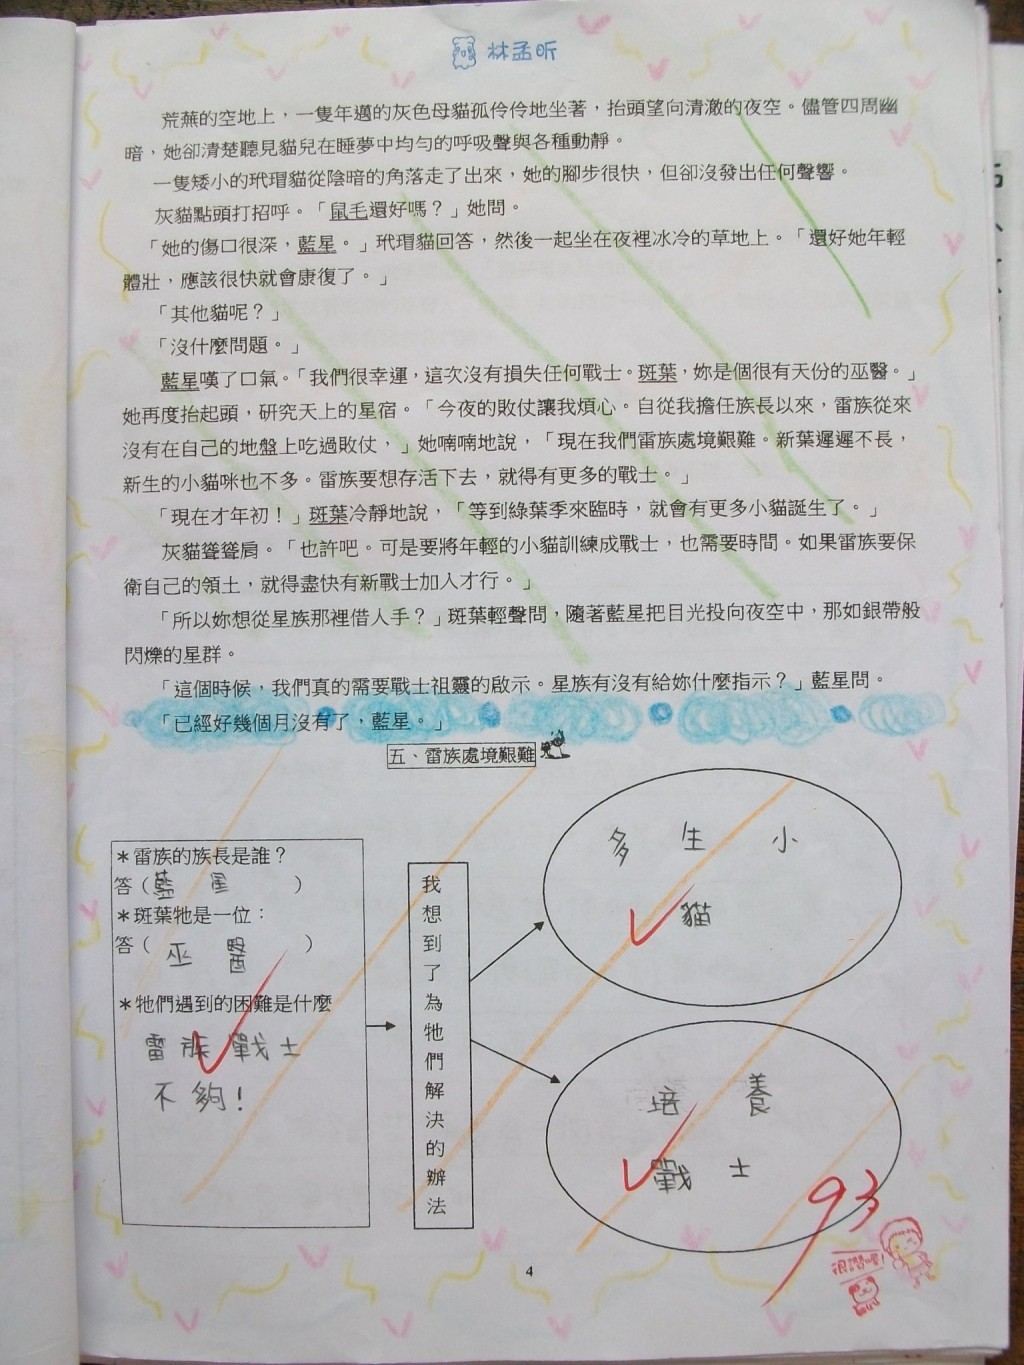 林孟昕
荒蕪的空地上，一隻年邁的灰色母貓孤伶伶地坐著，抬頭望向清澈的夜空。儘管四周幽
暗，她卻清楚聽見貓兒在睡夢中均勻的呼吸聲與各種動靜。
一隻矮小的玳瑁貓從陰暗的角落走了出來，她的腳步很快，但卻沒發出任何聲響。
灰貓點頭打招呼。「鼠毛還好嗎？」她問。
「她的傷口很深，藍星。」玳瑁貓回答，然後一起坐在夜裡冰冷的草地上。「還好她年輕
體壯，應該很快就會康復了。」
「其他貓呢？」
「沒什麼問題。」
藍星嘆了口氣。「我們很幸運，這次沒有損失任何戰士。斑葉，妳是個很有天份的巫醫。」
她再度抬起頭，研究天上的星宿。「今夜的敗仗讓我煩心。自從我擔任族長以來，雷族從來
沒有在自己的地盤上吃過敗仗，」她喃喃地說，「現在我們雷族處境艱難。新葉遲遲不長，
新生的小貓咪也不多。雷族要想存活下去，就得有更多的戰士。」
「現在才年初！」斑葉冷靜地說，「等到綠葉季來臨時，就會有更多小貓誕生了。」
灰貓聳聳肩。「也許吧。可是要將年輕的小貓訓練成戰士，也需要時間。如果雷族要保
衛自己的領土，就得盡快有新戰士加入才行。」
「所以妳想從星族那裡借人手？」斑葉輕聲問，隨著藍星把目光投向夜空中，那如銀帶般
閃爍的星群。
「這個時候，我們真的需要戰士祖靈的啟示。星族有沒有給妳什麼指示？」藍星問。
「已經好幾個月沒有了，藍星。」
五、雷族處境艱難
＊雷族的族長是誰？
答（藍星）
＊斑葉牠是一位：
答（巫醫）
＊牠們遇到的困難是什麼
雷族戰士
不夠！
我想到了為牠們解決的辦法
多生小
貓
培養
戰士
93
很讚喔！
4